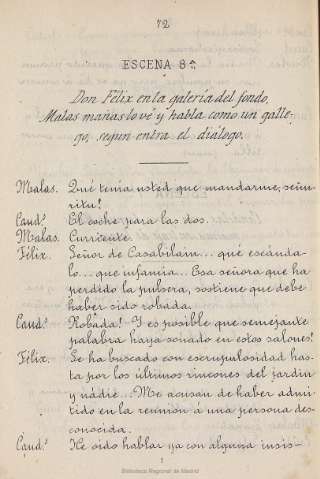 72
ESCENA 8ª
Don Félix en la galería del fondo,
Malas mañas lo vé y habla como un galle-
go, segun entra el diálogo.
Malas. Qué tenia usted que mandarme, señu-
ritu!
Caud.º El coche para las dos.
Malas. Curriente.
Félix. Señor de Casabilain... qué escánda-
lo... que infamia... Esa señora que ha
perdido la pulsera, sostiene que debe
haber sido robada.
Caud.º Robada! Y es posible que semejante
palabra haya sonado en estos salones!
Félix. Se ha buscado con escrupulosidad has-
ta por los últimos rincones del jardin
y nádie... Me acusan de haber admi-
tido en la reunión á una persona des-
conocida.
Caud.º He oido hablar ya con alguna insis-
Biblioteca Regional de Madrid